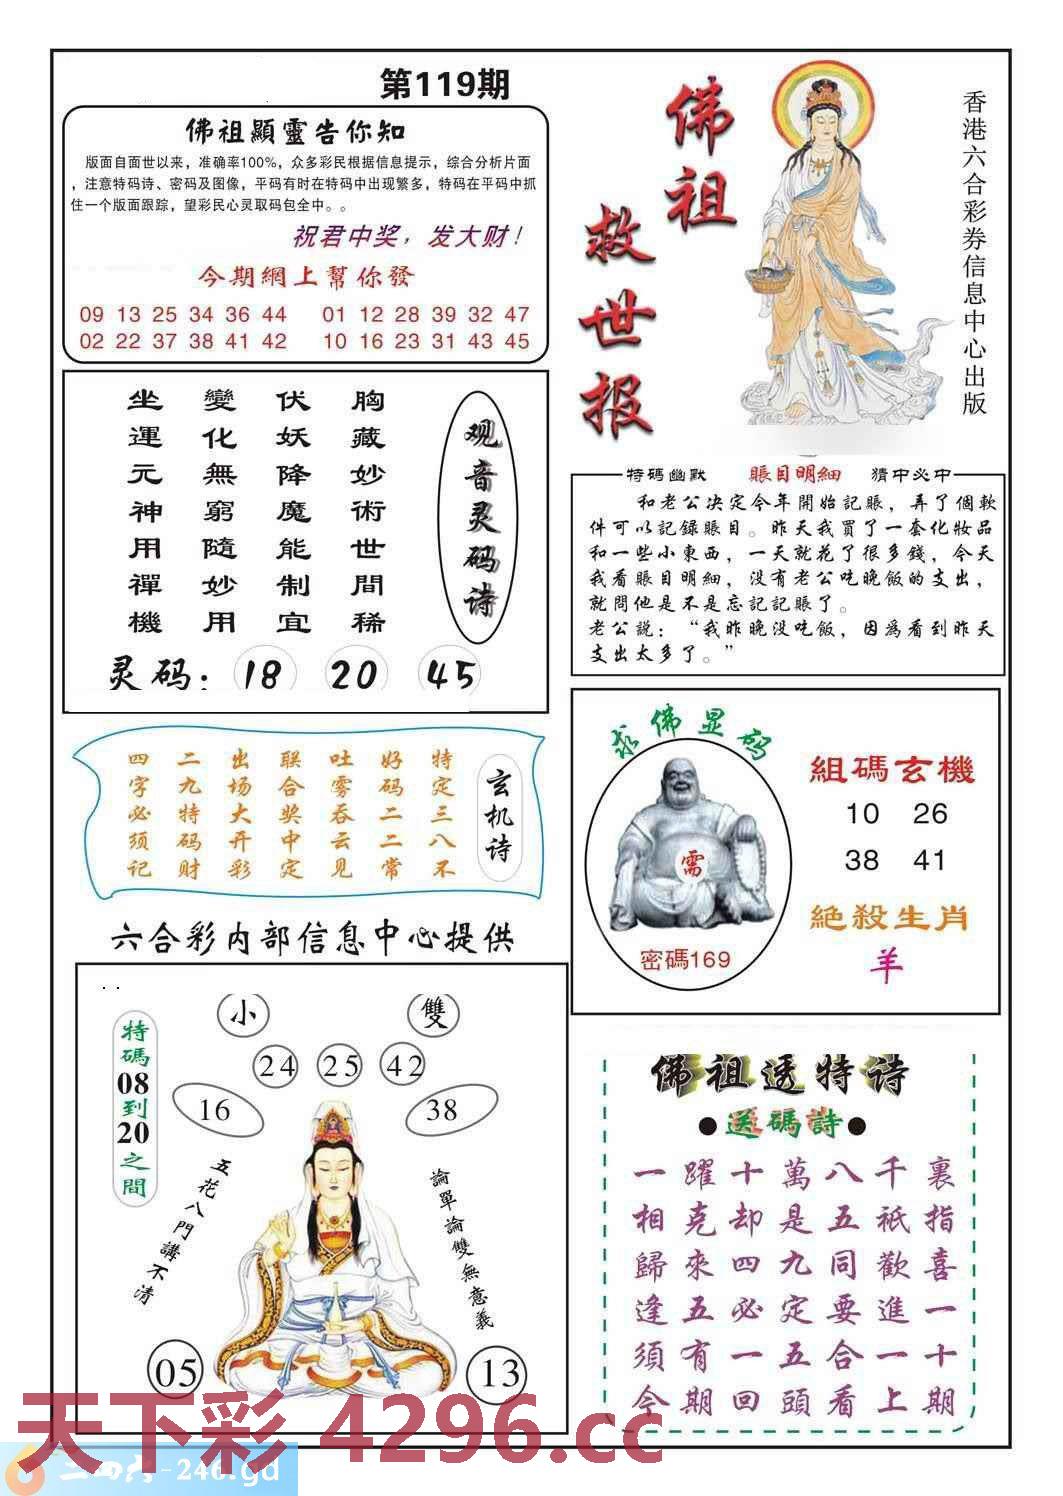 第119期
佛祖顯靈告你知
版面自面世以来，准确率100%，众多彩民根据信息提示，综合分析片面
，注意特码诗、密码及图像，平码有时在特码中出现繁多，特码在平码中抓
住一个版面跟踪，望彩民心灵取码包全中。。
祝君中奖，发大财！
今期網上幫你發
09 13 25 34 36 44 01 12 28 39 32 47
02 22 37 38 41 42 10 16 23 31 43 45
佛祖
救世报
香港六合彩券信息中心出版
观音灵码诗
胸藏妙術世間稀
伏妖降魔能制宜
變化無窮隨妙用
坐運元神用禪機
灵码：18 20 45
特碼幽默 賬目明細 猜中必中
和老公决定今年開始記賬，弄了個軟
件可以記録賬目。昨天我買了一套化妝品
和一些小東西，一天就花了很多錢，今天
我看賬目明細，没有老公吃晚飯的支出，
就問他是不是忘記記賬了。
老公説：“我昨晚没吃飯，因為看到昨天
支出太多了。”
玄机诗
特定三八不
好码二二常
吐雾吞云见
联合奖中定
出场大开彩
二九特码财
四字必须记
求佛显码
需
密碼169
組碼玄機
10 26
38 41
絶殺生肖
羊
六合彩内部信息中心提供
特碼08到20之間
小 雙
24 25 42
16 38
五花八門講不清
論單論雙無意義
05 13
佛祖透特诗
●送碼詩●
一躍十萬八千裏
相克却是五祇指
歸來四九同歡喜
逢五必定要進一
須有一五合一十
今期回頭看上期
天下彩 4296.cc
二四六-246.gd